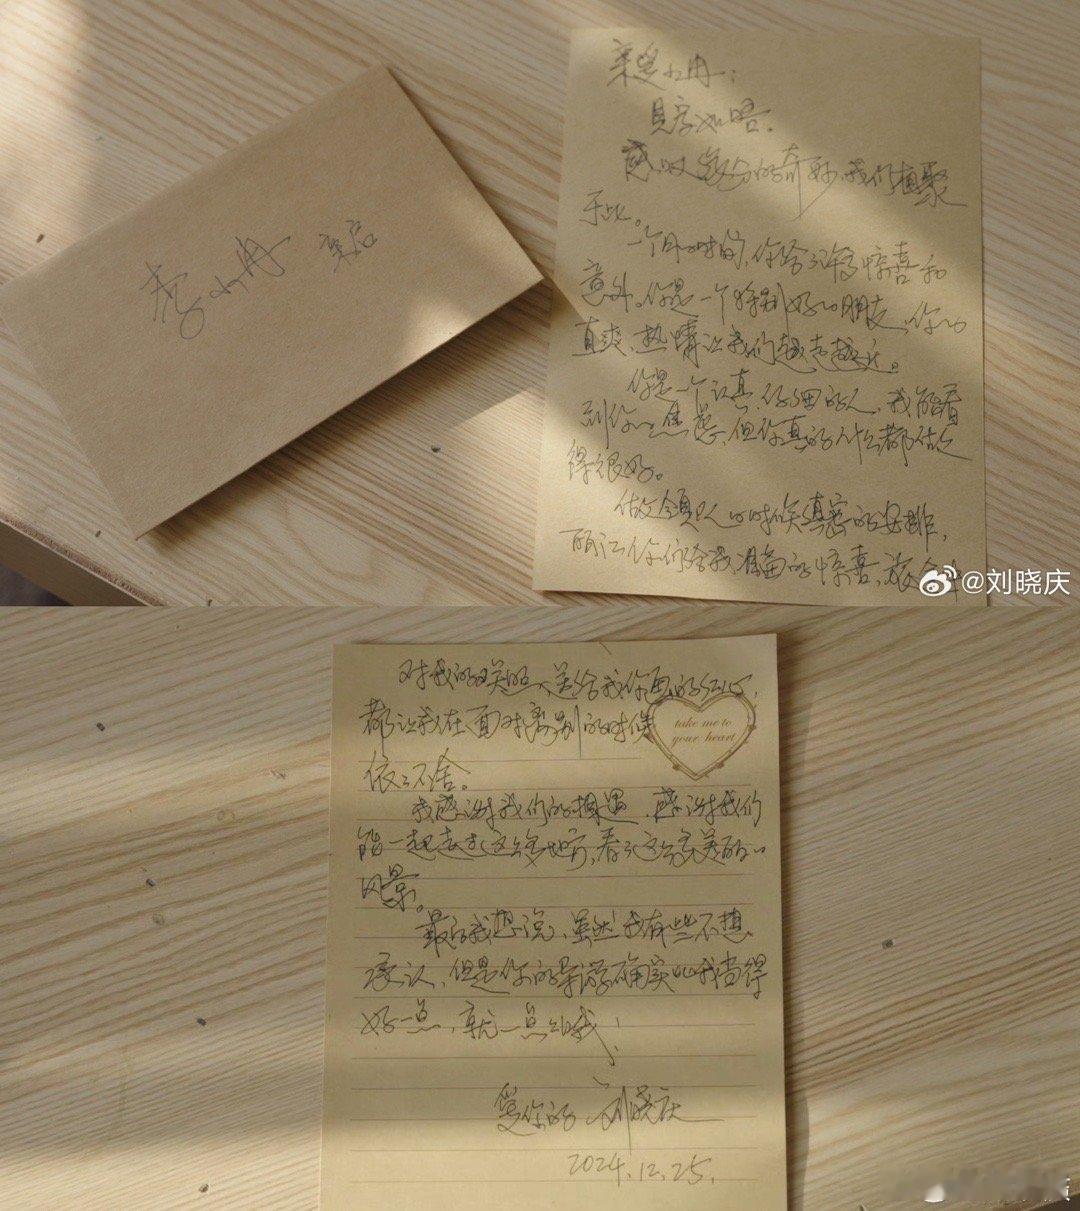 李小冉 亲启
亲爱小冉：
见字如晤。
感叹缘分的奇妙，我们相聚
于此。
一个月的时间，你给了我惊喜和
意外。你是一个特别好的朋友，你的
直爽、热情让我们越走越近。
你是一个认真、仔细的人，我能看
到你的焦虑，但你真的什么都做
得很好。
做领队的时候缜密的安排，
丽江你们给我准备的惊喜，旅途中
@刘晓庆
对我的关照，送给我你画的红心，
都让我在面对离别的时候
依依不舍。
take me to
your heart
我感谢我们的相遇，感谢我们
能一起去了这么多地方，看了这么多美丽的
风景。
最后我想说，虽然我有些不想
承认，但是你的导游确实比我当得
好一点，就一点点哦！
爱你的 刘晓庆
2024.12.25.